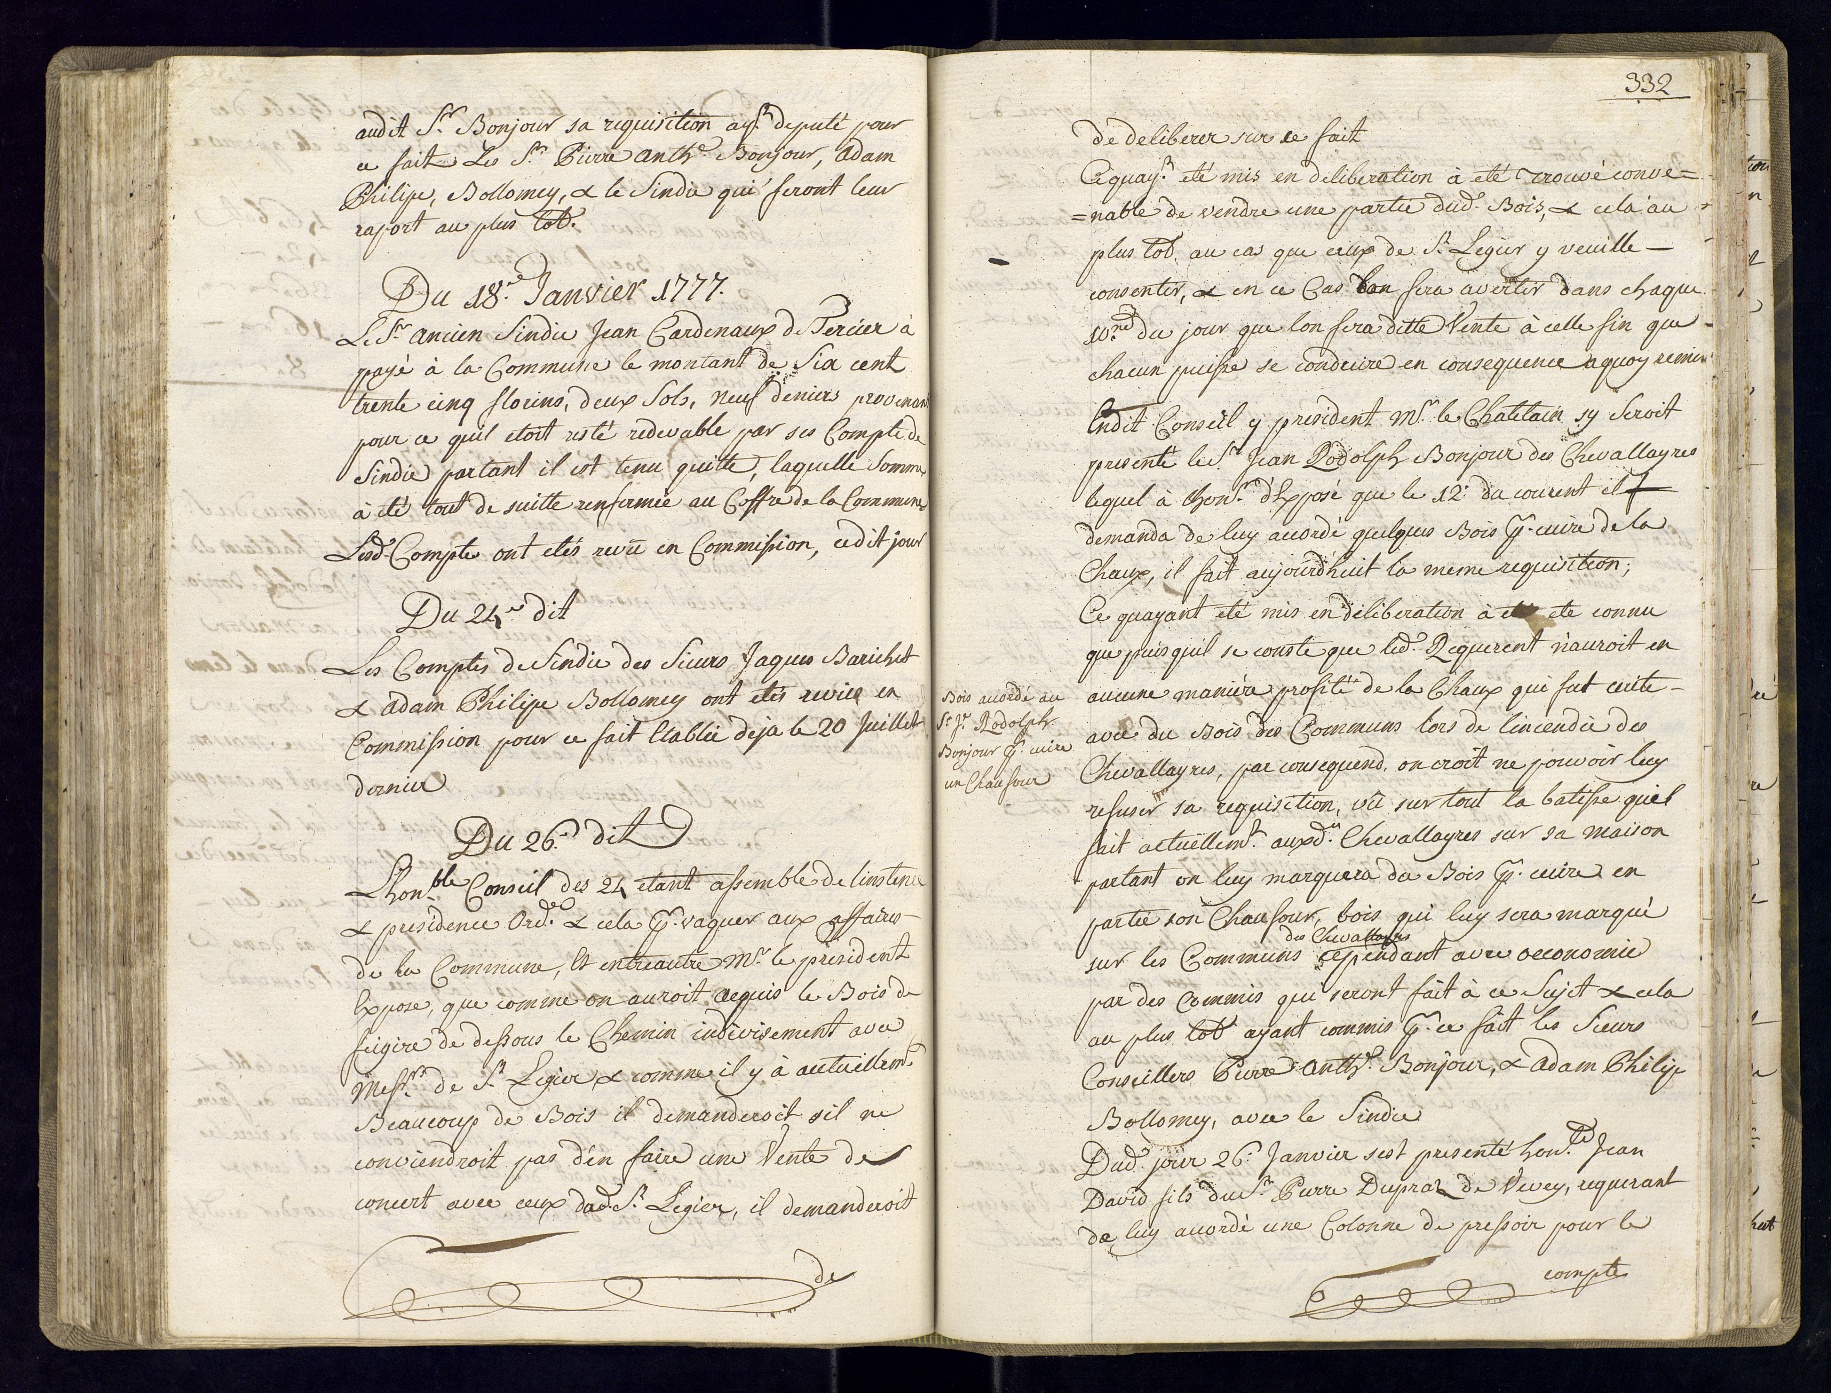 audit Sr. Bonjour sa requisition ayt. deputé pour
ce fait Les Srs. Pierre Anthe. Bonjour, Adam
Philipe, Bollomey, & le Sindic qui feront leur
raport au plus tot.
Du 18e. Janvier 1777.
Le Sr. Ancien Sindic Jean Cardinaux de Percier à
payé à la Commune le montant de Six cent
trente cinq florins, deux Sols, neuf deniers provenant
pour ce quil etoit resté redevable par ses Compte de
Sindic partant il est tenu quitte, laquelle Somme
à été tout de suitte renfermée au Coffre de la Commune
Lesd. Compte ont etés revû en Commission, cedit jour
Du 24e dit
Les Comptes de Sindic des Sieurs Jaques Barichet
& Adam Philipe Bollomey ont etés revûs en
Commission pour ce fait Etablie déja le 20 Juillet
dernier
Du 26e. dit
Lhonble. Conseil des 24 etant assemblé de linstence
& presidence Ordre. & cela pr. vaquer aux affaires
de la Commune, Et entreautre Mr. le president
Expose, que comme on auroit acquis le Bois de
feigire de dessous le Chemin indivisement avec
Messrs. de St. Legier & comme il y à actuellemt.
Beaucoup de Bois il demanderoit sil ne
conviendroit pas d'en faire une Vente de
concert avec ceux dud. St. Legier, il demanderoit
de
332
de deliberer sur ce fait
Ce quayt. eté mis en deliberation à eté trouvé conve=
=nable de vendre une partie dud. Bois, & cela au
plus tot, au cas que ceux de St. Legier y veuille
consentir, & en ce Cas lon fera avertir dans chaque
du jour que lon fera ditte Vente à celle fin que
chacun puisse se conduire en consequence aquoy remis
Endit Conseil y president Mr. le Chatelain sy seroit
presenté le Sr. Jean Rodolph Bonjour des Chevallayres
lequel à Exposé que le 12e. du courent il
demanda de luy accordé quelques Bois pr. cuire de la
Chaux, il fait aujourdhuit la meme requisition;
Ce quayant eté mis en deliberation à ete connu
que puis quil se conste que led. Requerent n'auroit en
aucune maniére profité de la Chaux qui fut cuite
avec du Bois des Communs lors de lincendie des
Chevallayres, par consequend, on croit ne pouvoir luy
refuser sa requisition, vû sur tout la batisse quil
fait actuellemt. auxd. Chevallayres sur sa maison
partant on luy marquera du Bois pr. cuire en
partie son Chaufour, bois qui luy sera marqué
des Chevallayres
sur les Communs cependant avec oeconomie
par des Commis qui seront fait à ce Sujet & cela
au plus tot ayant commis pr. ce fait les Sieurs
Conseillers Pierre Anthe. Bonjour, & Adam Philipe
Bollomey, avec le Sindic
Bois accordé au
Sr. Jn. Rodolph
Bonjour pr. cuire
un Chaufour
Dud. jour 26e. Janvier sest presenté hon. Jean
David fils du Sr. Pierre Dupraz de Vevey, requerant
de luy accordé une Colonne de pressoir pour le
compte